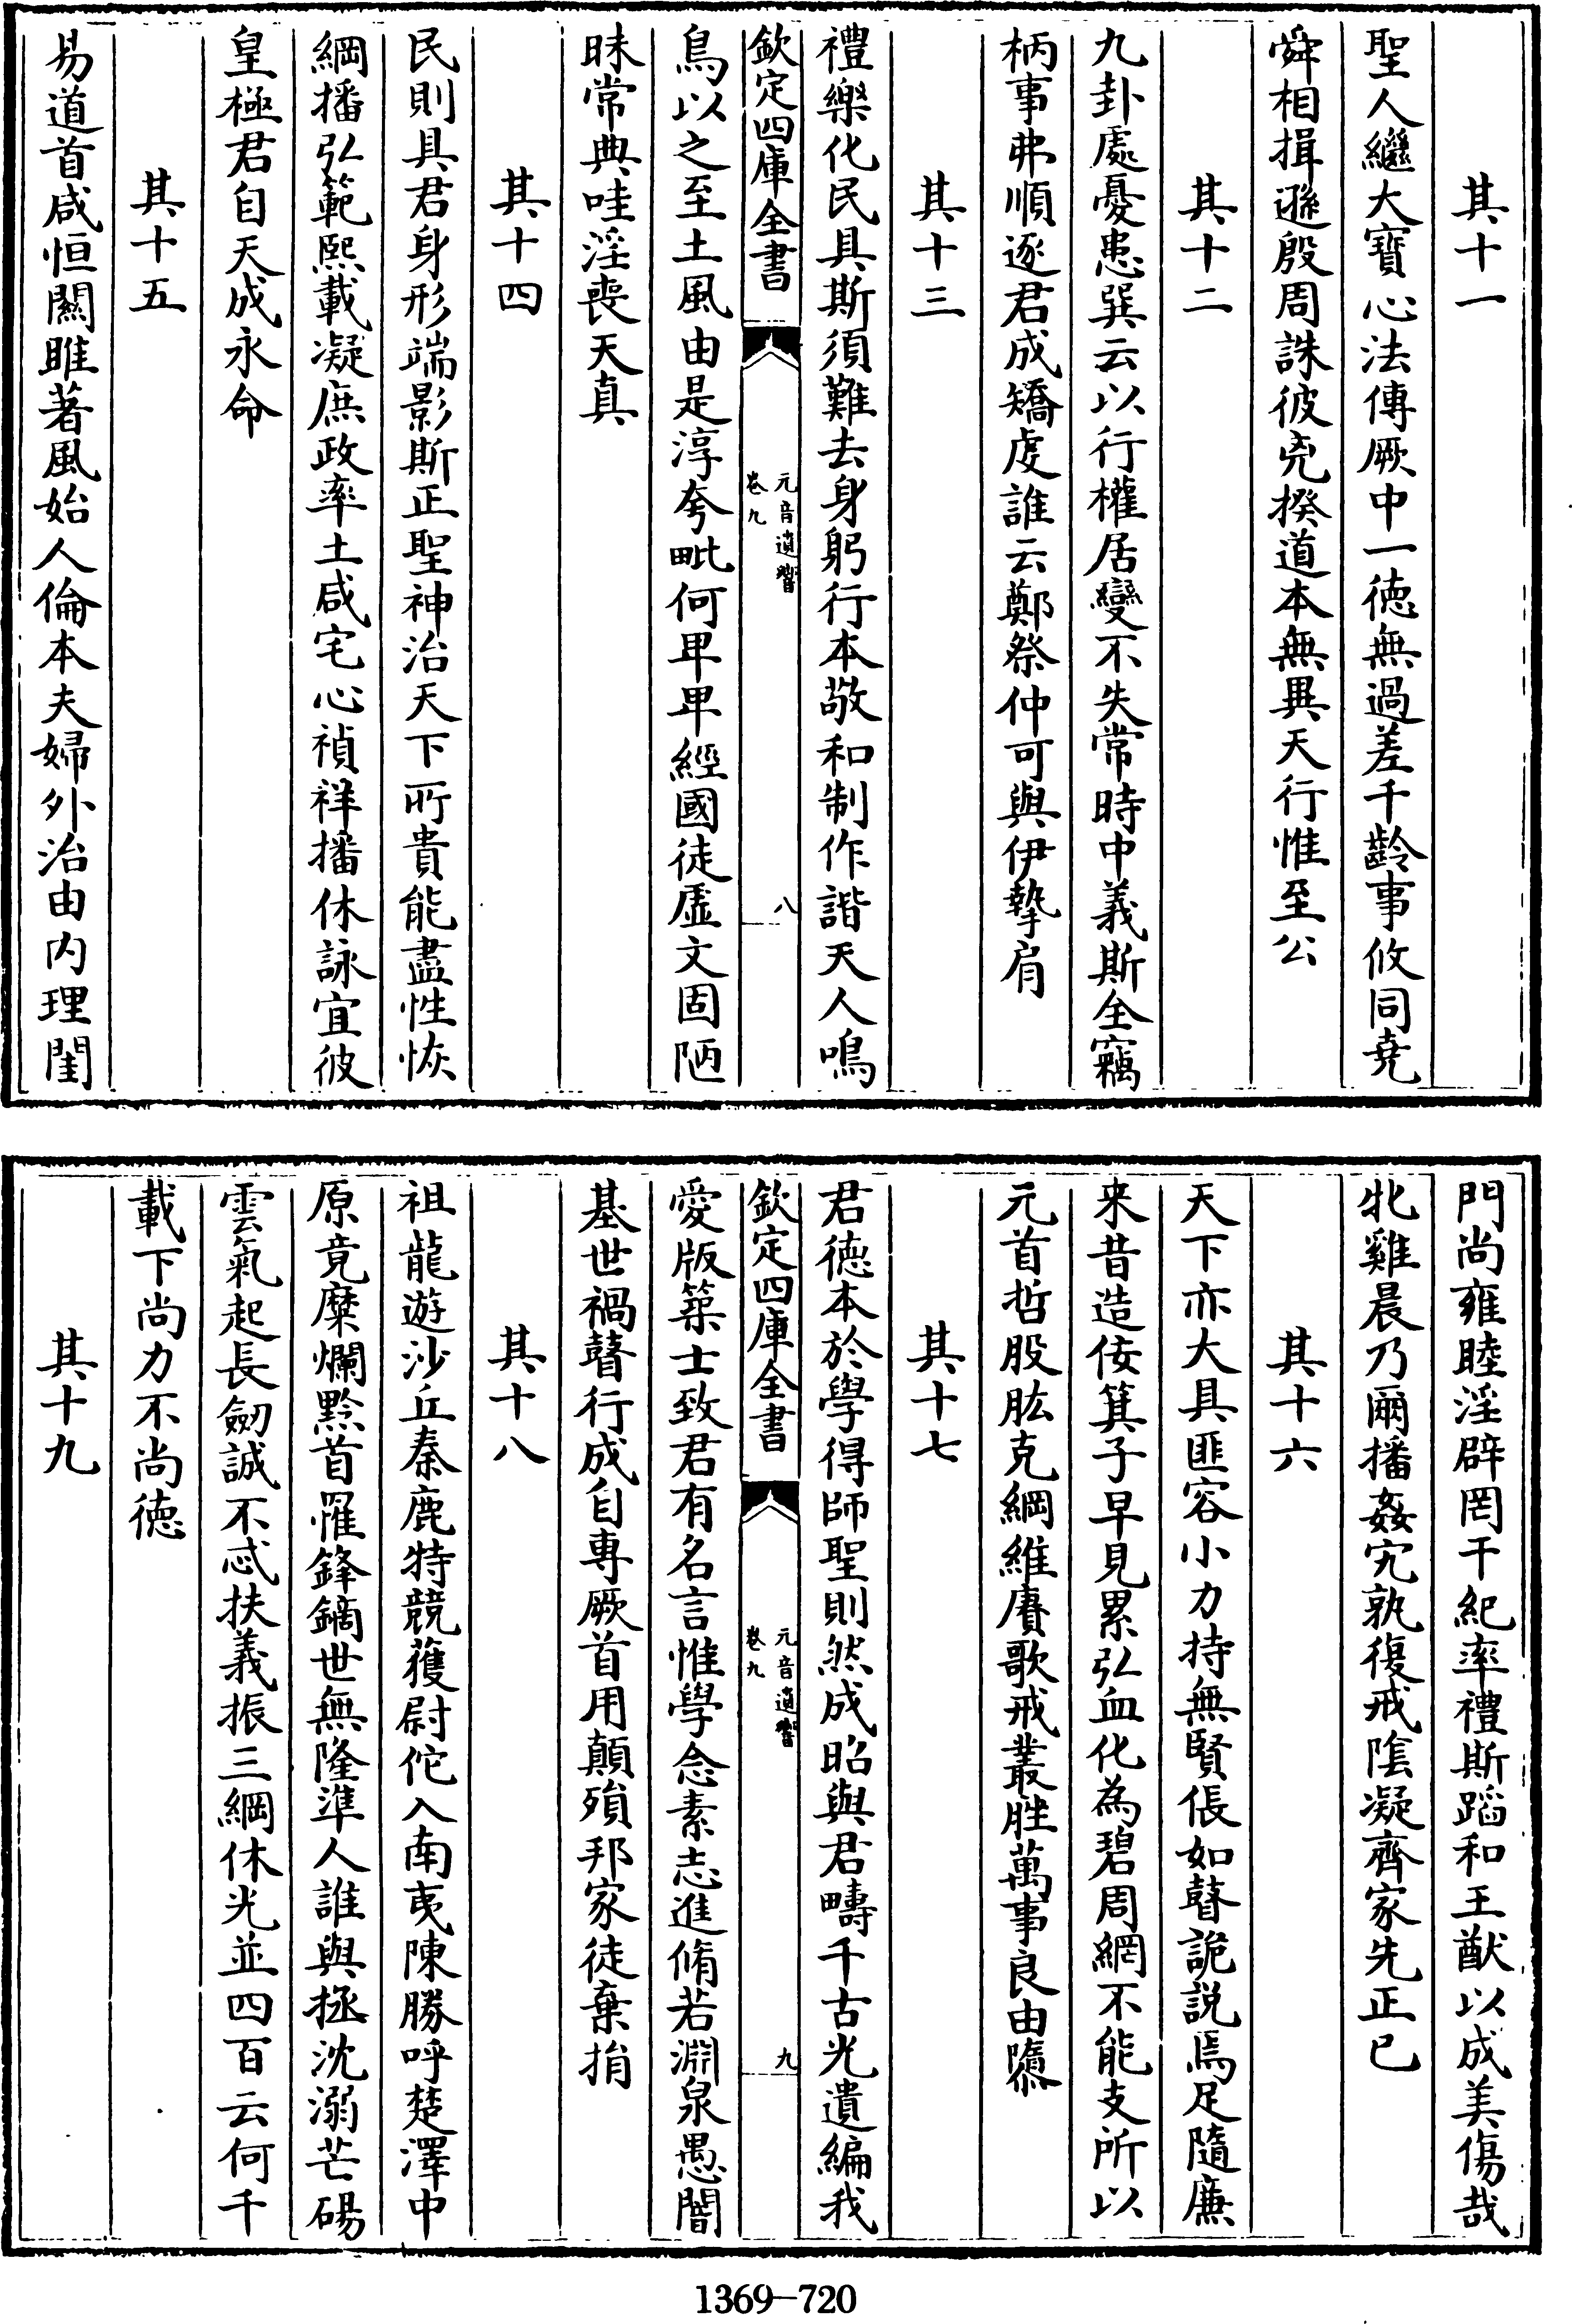 其十一
聖人繼大寶心法傳厥中一徳無過差千齡事攸同堯
舜相揖遜殷周誅彼兇揆道本無異天行惟至公
其十二
九卦處憂患巽云以行權居變不失常時中義斯全竊
柄事弗順逐君成矯虔誰云鄭祭仲可與伊摯肩
其十三
禮樂化民具斯須難去身躬行本敬和制作諧天人鳴
欽定四庫全書
元音遺響
卷九
八
鳥以之至土風由是淳夸毗何卑卑經國徒虛文固陋
昧常典哇淫喪天真
其十四
民則具君身形端影斯正聖神治天下所貴能盡性恢
綱播弘範熙載凝庶政率土咸宅心禎祥播休詠宜彼
皇極君自天成永命
其十五
易道首咸恒關雎著風始人倫本夫婦外治由内理閨
門尚雍睦淫辟罔干紀率禮斯蹈和王猷以成美傷哉
牝雞晨乃爾播姦宄孰復戒隂凝齊家先正已
其十六
天下亦大具匪容小力持無賢倀如瞽詭説焉足隨廉
来昔造佞箕子早見累弘血化為碧周網不能支所以
元首哲股肱克綱維賡歌戒叢脞萬事良由隳
其十七
君徳本於學得師聖則然成昭與君疇千古光遺編我
欽定四庫全書
元音遺響
卷九
九
愛版築士致君有名言惟學念素志進脩若淵泉愚闇
基世禍瞽行成自專厥首用顛殞邦家徒棄捐
其十八
祖龍遊沙丘秦鹿特競獲尉佗入南夷陳勝呼楚澤中
原竟糜爛黔首罹鋒鏑世無隆準人誰與拯沈溺芒碭
雲氣起長劒誠不忒扶義振三綱休光並四百云何千
載下尚力不尚徳
其十九
1369—720